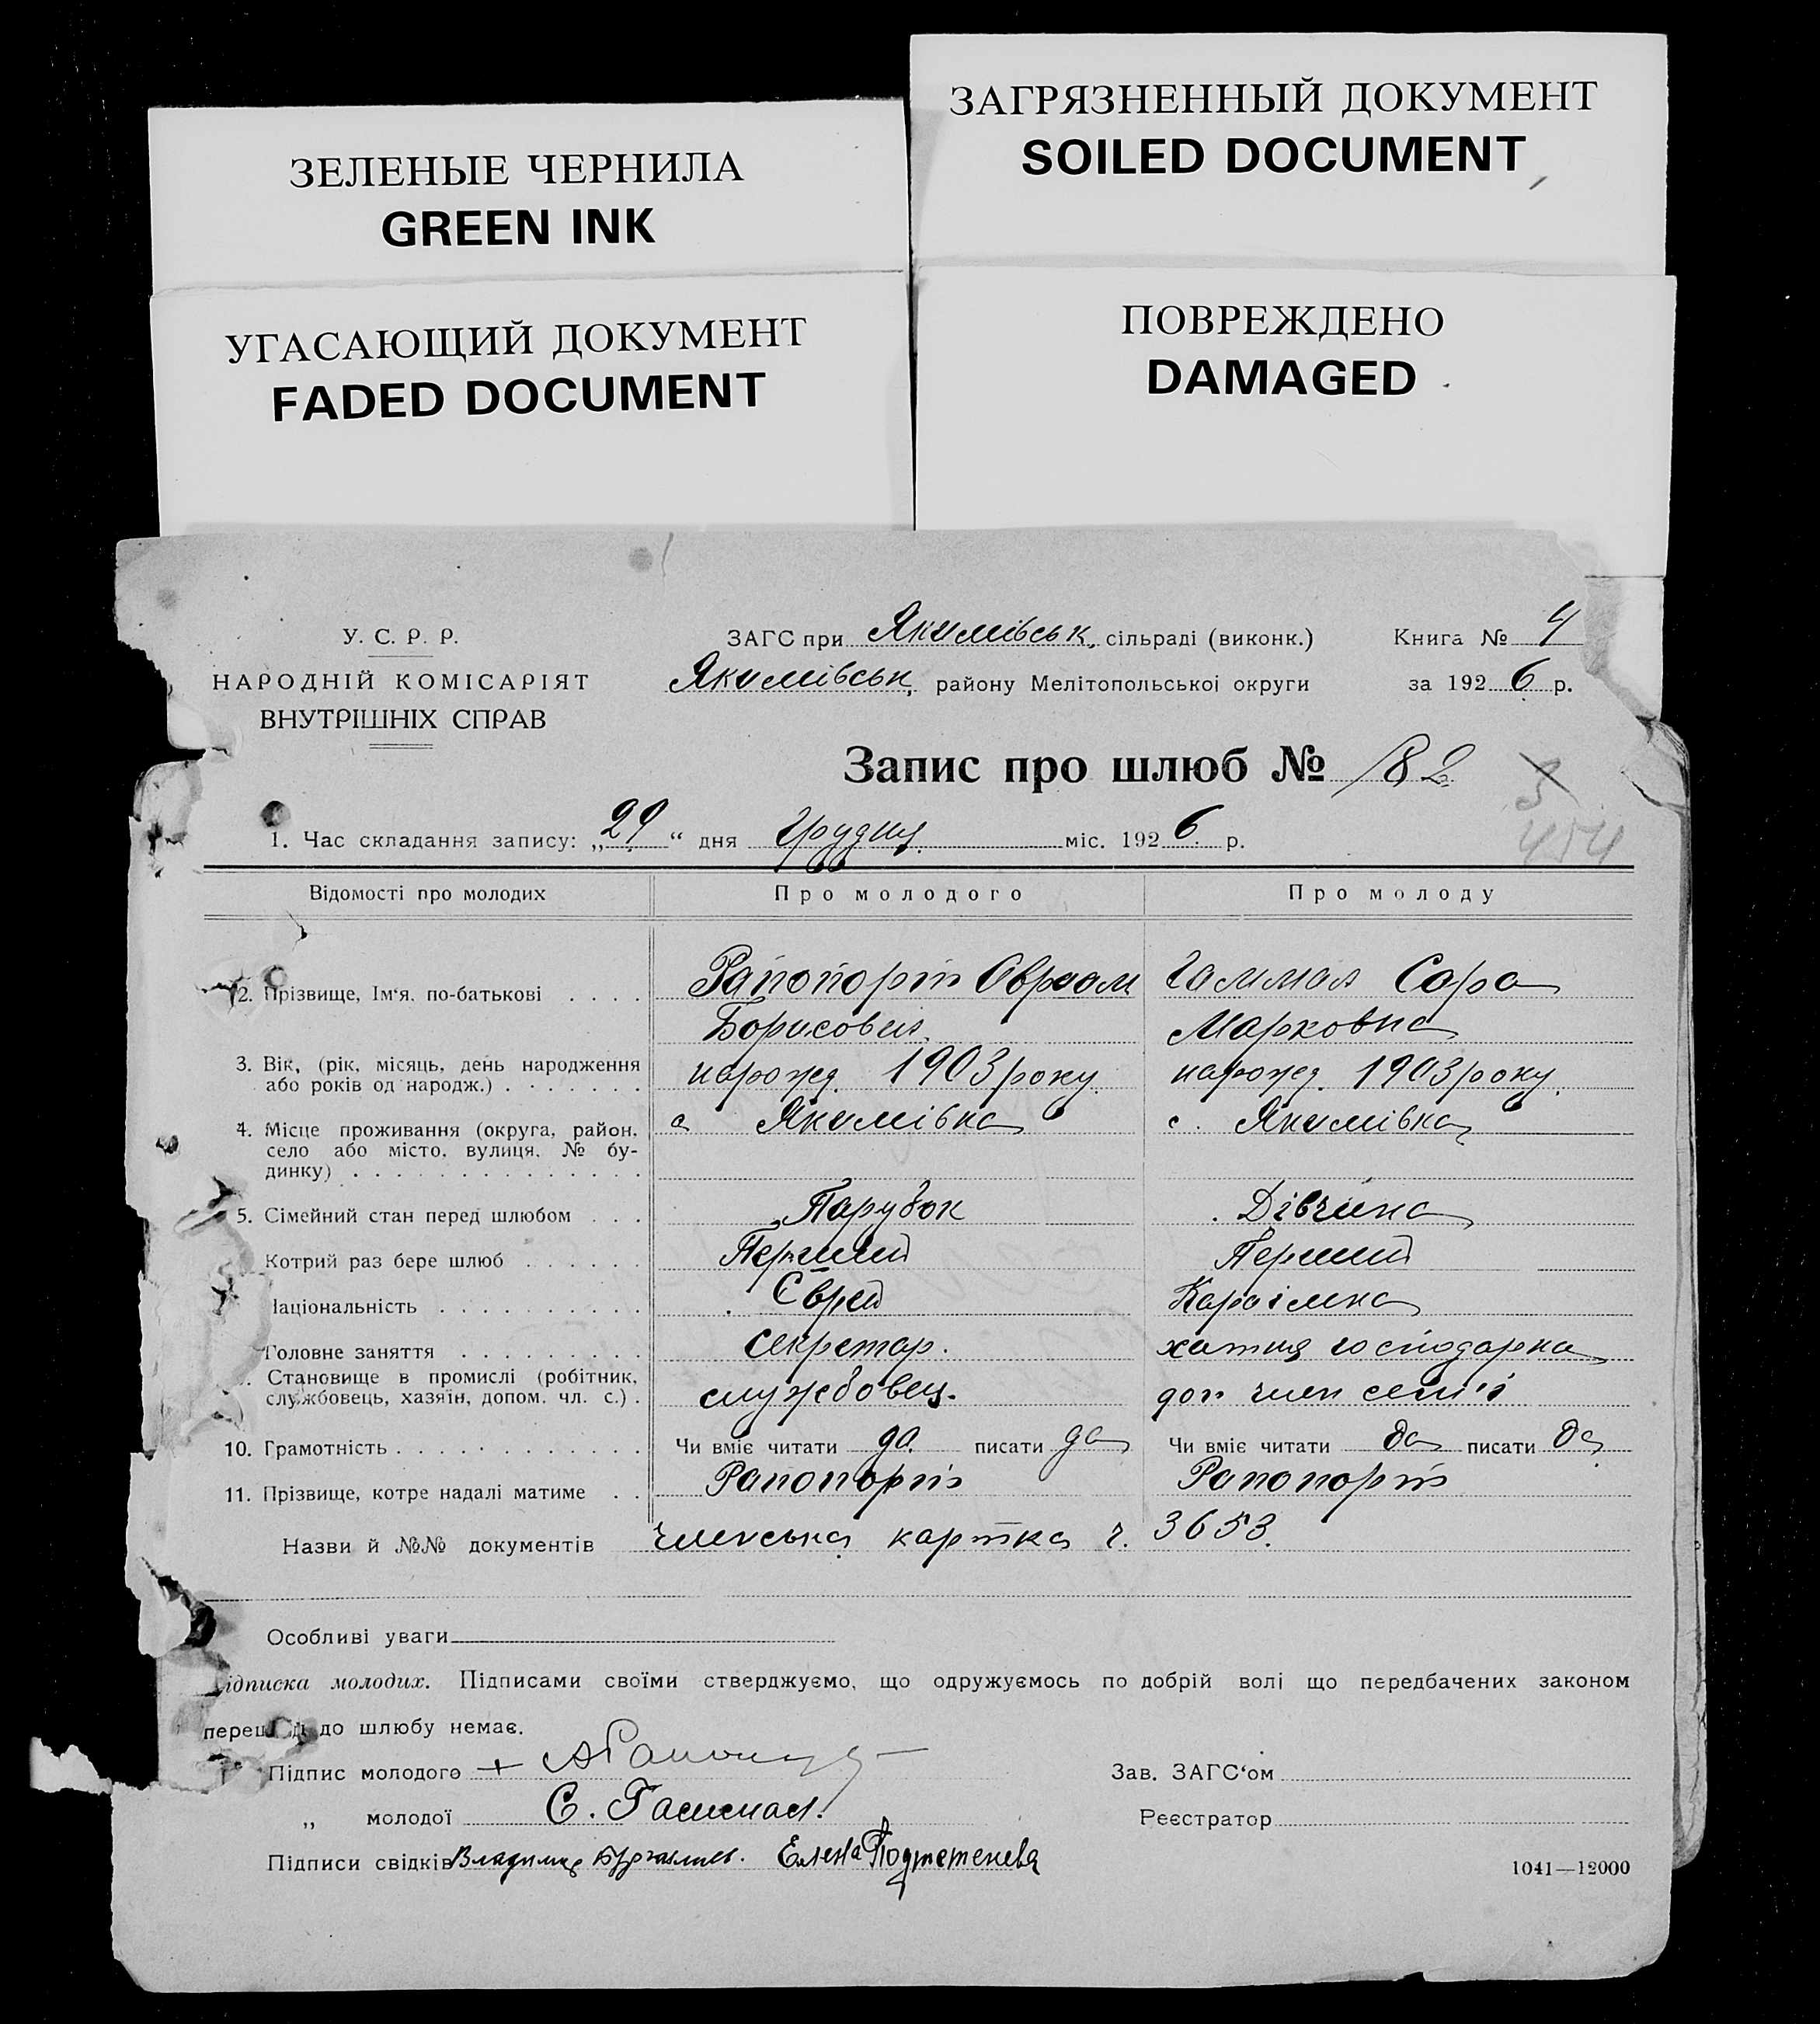 ЗАГРЯЗНЕННЫЙ ДОКУМЕНТ
SOILED DOCUMENT
ЗЕЛЕНЫЕ ЧЕРНИЛА
GREEN INK
УГАСАЮЩИЙ ДОКУМЕНТ
FADED DOCUMENT
ПОВРЕЖДЕНО
DAMAGED
У. С. Р. Р.
НАРОДНІЙ КОМІСАРІЯТ
ВНУТРІШНІХ СПРАВ
ЗАГС при Якимівськ. сільраді (виконк.) Книга № 4
Якимівськ. району Мелітопольської округи за 1926 р.
Запис про шлюб № 182
1. Час складання запису: „29“ дня Грудня міс. 1926 р.
Відомості про молодих Про молодого Про молоду
2. Прізвище, Ім'я, по-батькові . . . . Рапопорт Авраам Гаммал Сара
Борисович Марковна
3. Вік, (рік, місяць, день народження або років од народж.) . . . . . . . нарожд. 1903 року. нарожд. 1903 року.
4. Місце проживання (округа, район, село або місто, вулиця, № будинку) . . . . . . . . . . . . . . с Якимівка с. Якимівка
5. Сімейний стан перед шлюбом . . . Парубок Дівчина
Котрий раз бере шлюб . . . . . . Перший Перший
Національність . . . . . . . . . . Єврей Караімка
Головне заняття . . . . . . . . . Секретар. хатня господарка
Становище в промислі (робітник, службовець, хазяїн, допом. чл. с.) . службовец. доп член семʼї
10. Грамотність . . . . . . . . . . . . Чи вміє читати да писати да Чи вміє читати да писати да
11. Прізвище, котре надалі матиме . . Рапопорт Рапопорт
Назви й №№ документів членська картка ч. 3653.
Особливі уваги
ідписка молодих. Підписами своїми стверджуємо, що одружуємось по добрій волі що передбачених законом
переш д до шлюбу немає.
Підпис молодого + АРапопорт Зав. ЗАГС'ом
„ молодої С. Гаммал. Реєстратор
Підписи свідків Владимир Елена
1041—12000